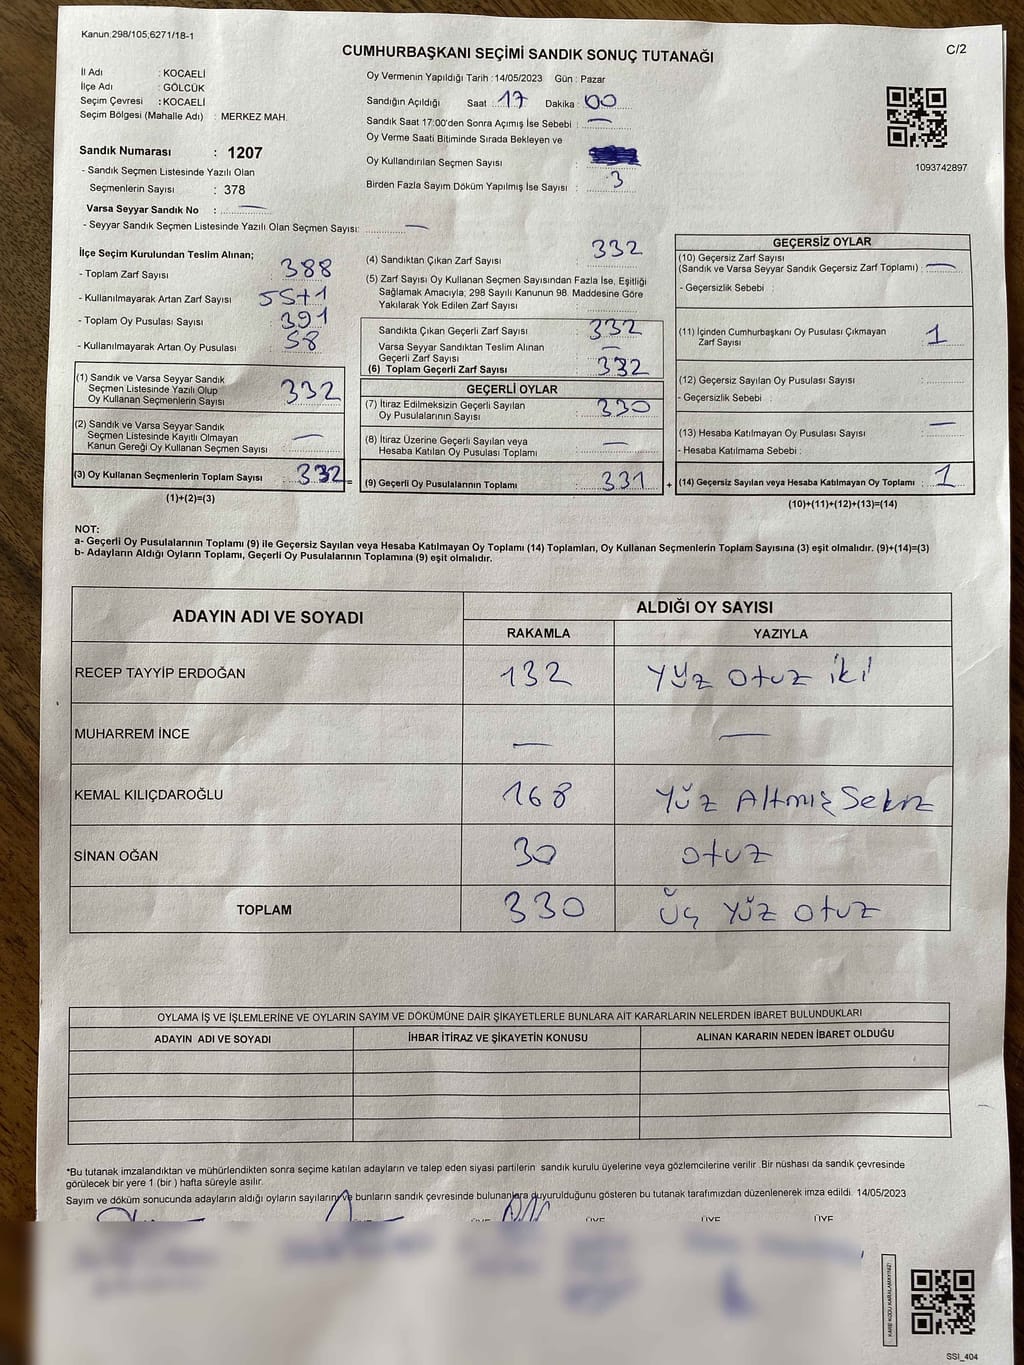 Kanun:298/105,6271/18-1
C/2
CUMHURBAŞKANI SEÇİMİ SANDIK SONUÇ TUTANAĞI
İl Adı : KOCAELİ
İlçe Adı : GÖLCÜK
Seçim Çevresi : KOCAELİ
Seçim Bölgesi (Mahalle Adı) : MERKEZ MAH.
Sandık Numarası : 1207
- Sandık Seçmen Listesinde Yazılı Olan
Seçmenlerin Sayısı : 378
Varsa Seyyar Sandık No : —
- Seyyar Sandık Seçmen Listesinde Yazılı Olan Seçmen Sayısı: —
Oy Vermenin Yapıldığı Tarih :14/05/2023 Gün : Pazar
Sandığın Açıldığı Saat : 17 Dakika : 00
Sandık Saat 17:00'den Sonra Açımış İse Sebebi : —
Oy Verme Saati Bitiminde Sırada Bekleyen ve
Oy Kullandırılan Seçmen Sayısı :
Birden Fazla Sayım Döküm Yapılmış İse Sayısı : 3
1093742897
İlçe Seçim Kurulundan Teslim Alınan;
- Toplam Zarf Sayısı : 388
- Kullanılmayarak Artan Zarf Sayısı : 55+1
- Toplam Oy Pusulası Sayısı : 391
- Kullanılmayarak Artan Oy Pusulası : 58
(1) Sandık ve Varsa Seyyar Sandık
Seçmen Listesinde Yazılı Olup
Oy Kullanan Seçmenlerin Sayısı : 332
(2) Sandık ve Varsa Seyyar Sandık
Seçmen Listesinde Kayıtlı Olmayan
Kanun Gereği Oy Kullanan Seçmen Sayısı : —
(3) Oy Kullanan Seçmenlerin Toplam Sayısı : 332 =
(1)+(2)=(3)
(4) Sandıktan Çıkan Zarf Sayısı : 332
(5) Zarf Sayısı Oy Kullanan Seçmen Sayısından Fazla İse, Eşitliği
Sağlamak Amacıyla; 298 Sayılı Kanunun 98. Maddesine Göre
Yakılarak Yok Edilen Zarf Sayısı :
Sandıkta Çıkan Geçerli Zarf Sayısı : 332
Varsa Seyyar Sandıktan Teslim Alınan
Geçerli Zarf Sayısı : —
(6) Toplam Geçerli Zarf Sayısı : 332
GEÇERLİ OYLAR
(7) İtiraz Edilmeksizin Geçerli Sayılan
Oy Pusulalarının Sayısı : 330
(8) İtiraz Üzerine Geçerli Sayılan veya
Hesaba Katılan Oy Pusulası Toplamı : —
(9) Geçerli Oy Pusulalarının Toplamı : 331 +
GEÇERSİZ OYLAR
(10) Geçersiz Zarf Sayısı
(Sandık ve Varsa Seyyar Sandık Geçersiz Zarf Toplamı) : —
- Geçersizlik Sebebi :
(11) İçinden Cumhurbaşkanı Oy Pusulası Çıkmayan
Zarf Sayısı : 1
(12) Geçersiz Sayılan Oy Pusulası Sayısı :
- Geçersizlik Sebebi :
(13) Hesaba Katılmayan Oy Pusulası Sayısı : —
- Hesaba Katılmama Sebebi :
(14) Geçersiz Sayılan veya Hesaba Katılmayan Oy Toplamı : 1
(10)+(11)+(12)+(13)=(14)
NOT:
a- Geçerli Oy Pusulalarının Toplamı (9) ile Geçersiz Sayılan veya Hesaba Katılmayan Oy Toplamı (14) Toplamları, Oy Kullanan Seçmenlerin Toplam Sayısına (3) eşit olmalıdır. (9)+(14)=(3)
b- Adayların Aldığı Oyların Toplamı, Geçerli Oy Pusulalarının Toplamına (9) eşit olmalıdır.
ADAYIN ADI VE SOYADI
ALDIĞI OY SAYISI
RAKAMLA YAZIYLA
RECEP TAYYİP ERDOĞAN 132 yüz otuz iki
MUHARREM İNCE — —
KEMAL KILIÇDAROĞLU 168 Yüz Altmış Sekiz
SİNAN OĞAN 30 otuz
TOPLAM 330 üç yüz otuz
OYLAMA İŞ VE İŞLEMLERİNE VE OYLARIN SAYIM VE DÖKÜMÜNE DAİR ŞİKAYETLERLE BUNLARA AİT KARARLARIN NELERDEN İBARET BULUNDUKLARI
ADAYIN ADI VE SOYADI İHBAR İTİRAZ VE ŞİKAYETİN KONUSU ALINAN KARARIN NEDEN İBARET OLDUĞU
*Bu tutanak imzalandıktan ve mühürlendikten sonra seçime katılan adayların ve talep eden siyasi partilerin sandık kurulu üyelerine veya gözlemcilerine verilir .Bir nüshası da sandık çevresinde
görülecek bir yere 1 (bir ) hafta süreyle asılır.
Sayım ve döküm sonucunda adayların aldığı oyların sayılarını ve bunların sandık çevresinde bulunanlara duyurulduğunu gösteren bu tutanak tarafımızdan düzenlenerek imza edildi. 14/05/2023
ÜYE ÜYE ÜYE ÜYE
KARE KODU KARALAMAYINIZ!
SSI_404